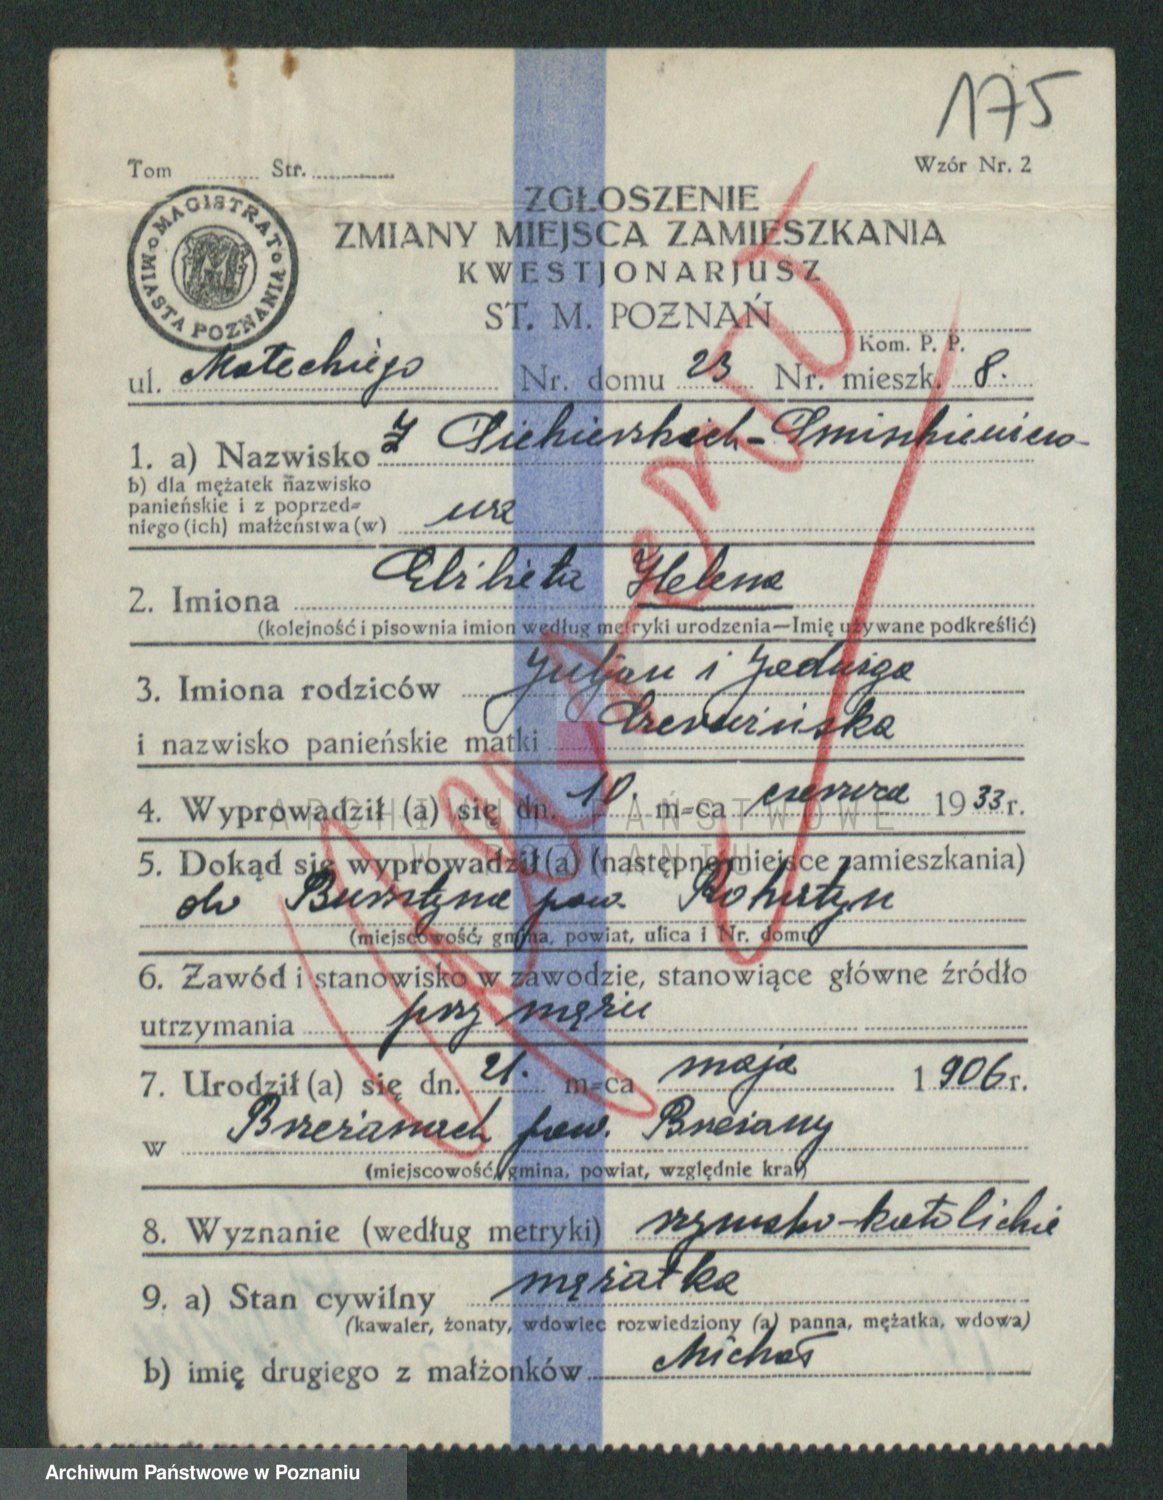 175
Tom ........ Str. ............ Wzór Nr. 2
MAGISTRAT MIASTA POZNANIA
ZGŁOSZENIE
ZMIANY MIEJSCA ZAMIESZKANIA
KWESTJONARJUSZ
ST. M. POZNAŃ
Kom. P. P.
ul. Małeckiego Nr. domu 23 Nr. mieszk. 8.
1. a) Nazwisko z
b) dla mężatek nazwisko
panieńskie i z poprzed-
niego (ich) małżeństwa (w) urz
2. Imiona Elżbieta Helena
(kolejność i pisownia imion według metryki urodzenia—Imię używane podkreślić)
3. Imiona rodziców Juljan i Jadwiga
i nazwisko panieńskie matki
4. Wyprowadził (a) się dn. 10. m-ca czerwca 1933 r.
5. Dokąd się wyprowadził (a) (następne miejsce zamieszkania)
do Bursztyna pow. Rohatyn
(miejscowość, gmina, powiat, ulica i Nr. domu)
6. Zawód i stanowisko w zawodzie, stanowiące główne źródło
utrzymania przy mężu
7. Urodził (a) się dn. 21. m-ca maja 1906 r.
w Brzeżanach pow. Brzeżany
(miejscowość, gmina, powiat, względnie kraj)
8. Wyznanie (według metryki) rzymsko-katolickie
9. a) Stan cywilny mężatka
(kawaler, żonaty, wdowiec rozwiedziony (a) panna, mężatka, wdowa)
b) imię drugiego z małżonków Michał
ARCHIWUM PAŃSTWOWE
W POZNANIU
Archiwum Państwowe w Poznaniu